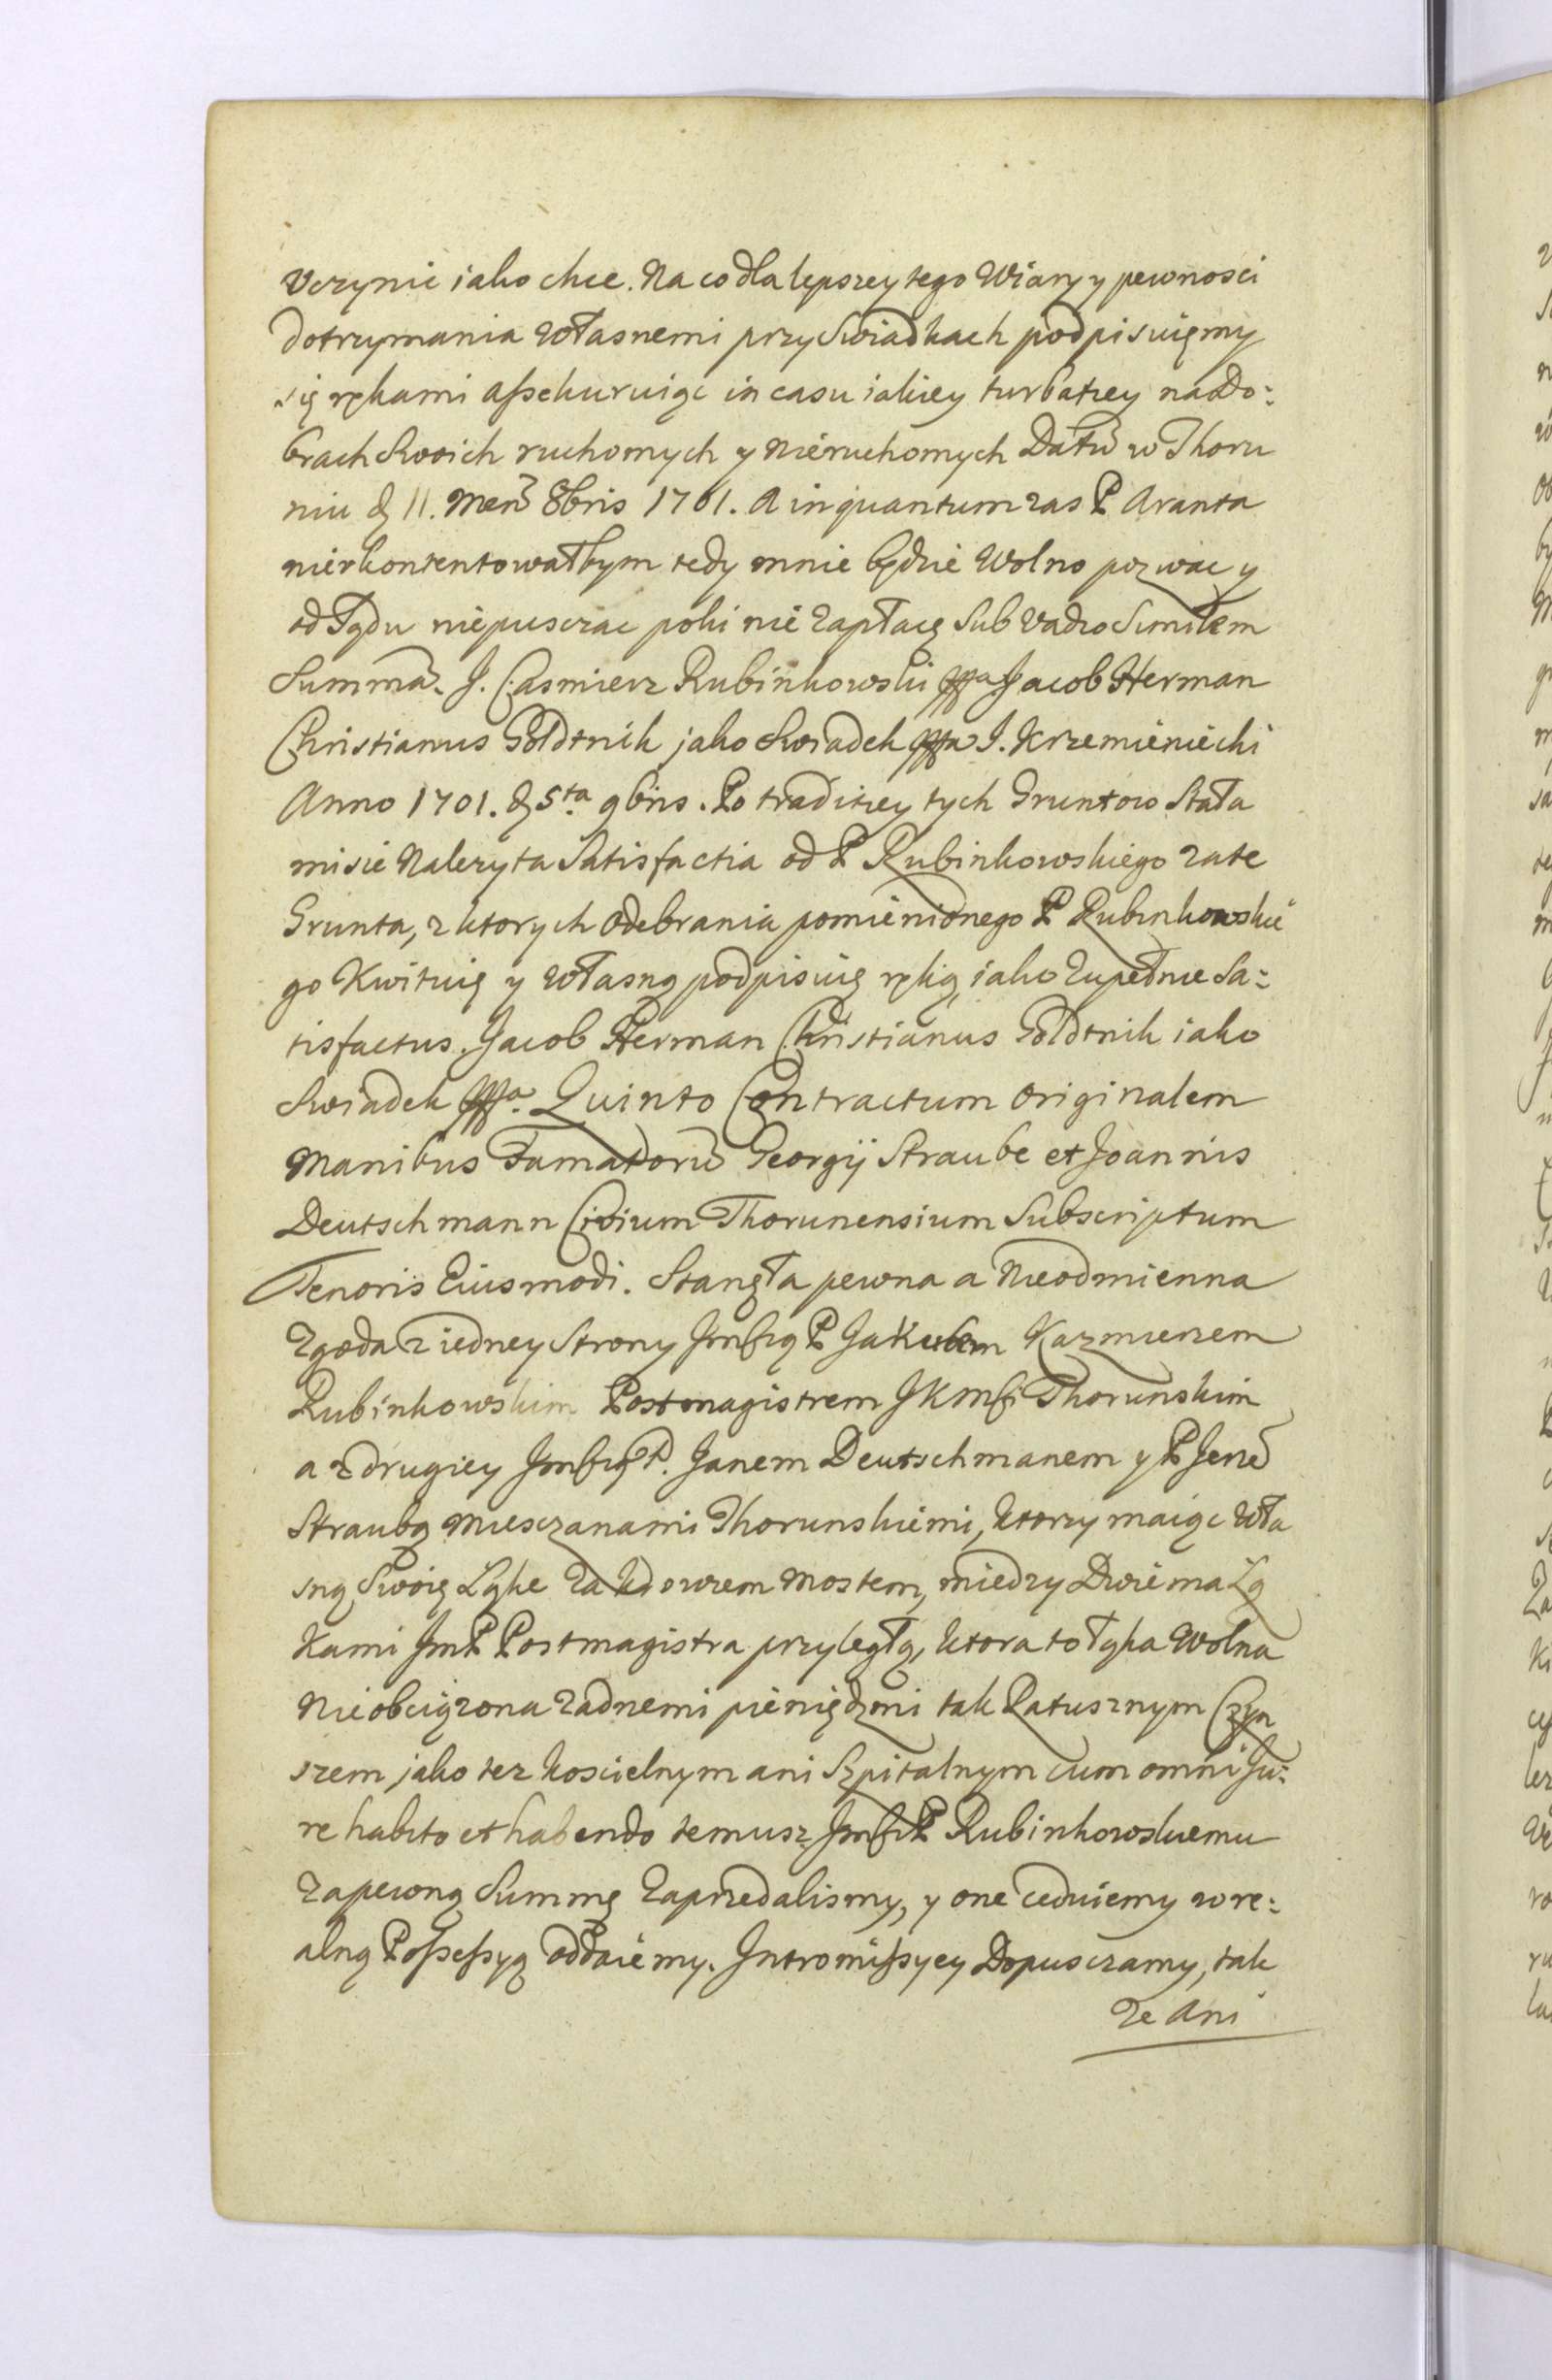 Vczynic iako chce. Na co dla lepszey tego Wiary y pewnosci
dotrzymania własnemi przy Swiadkach podpisuięmy
się rękami aſsekuruiąc in casu iakiey turbatiey na Do:
brach Swoich ruchomych y Nieruchomych Datũ w Thoru
niu d 11. Men̄ 8bris 1701. A inquantum zas P Aranta
nierkontentowałbym tedy mnie będzie Wolno pozwac y
od Sądu niepusczac poki nie Zapłacę Sub Vadio Similem
Summā. J. Casmierz Rubinkowski Jacob Herman
Christianus Goldtnik jako Swiadek J. Krzemieniecki
Anno 1701. d 5ta 9bris. Po traditiey tych Gruntow Stała
misie Nalezyta Satisfactia od P Rubinkowskiego zate
Grunta, z ktorych odebrania pomienionego P Rubinkowskie
go Kwituię y własną podpisuię ręką, iako Zupełnie Sa:
tisfactus. Jacob Herman Christianus Goldtnik iako
Swiadek Quinto Contractum Originalem
Manibus Famatorũ Georgij Straube et Joannis
Deutschmann Civium Thorunensium Subscriptum
Tenoris Eiusmodi. Stanęła pewna a Nieodmienna
Zgoda z iedney Strony Jmści P Jakubem Kazmierzem
Rubinkowskim Postmagistrem JKMści Thorunskim
a z drugiey Jmścią P. Janem Deutschmanem y P Jerzē
Straubą Miesczanami Thorunskiemi, ktorzy maiąc Wła
sną Swoię Ląke Za mostem, miedzy Dwiema Lą
Kami JmP Postmagistra przyległą, ktora to łąka Wolna
Nieobciązona Zadnemi pieniędzmi tak Ratusznym Czyn
szem jako tez koscielnym ani Szpitalnym cum omni Ju:
re habito et habendo temusz Jmści P Rubinkowskiemu
Zapewną Summę Zaprzedalismy, y one ceduiemy w re:
alną Poſseſsyą oddaiemy. Intromiſsyey Dopusczamy, tak
Ze Ani